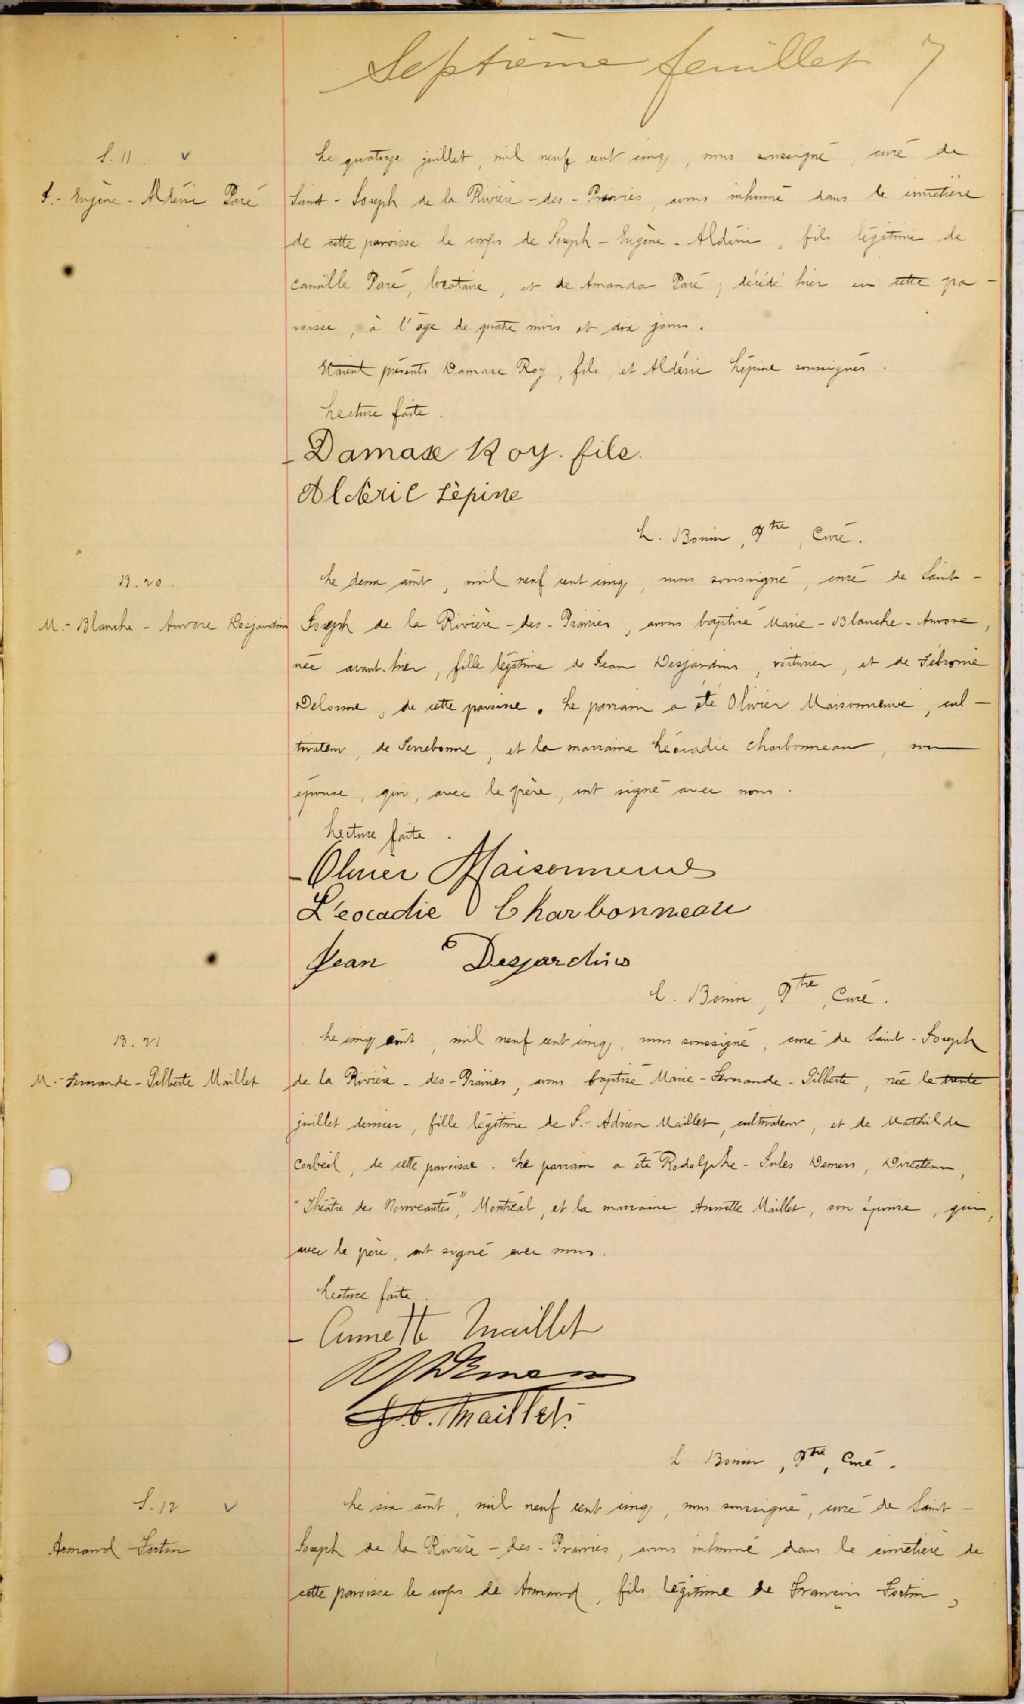 Septième feuillet 7
S. 11. v
J.- Eugène - Aldéric Paré
Le quatorze juillet, mil neuf cent cinq, nous soussigné, curé de
Saint - Joseph de la Rivière - des - Prairies, avons inhumé dans le cimetière
de cette paroisse le corps de Joseph - Eugène - Aldéric, fils légitime de
Camille Paré, locataire, et de Amanda Paré, décédé hier en cette pa -
roisse, à l'âge de quatre mois et dix jours.
Etaient présents Damase Roy, fils, et Aldéric Lépine soussignés.
Lecture faite.
Damase Roy. fils.
Aldéric Lépine
L. Bonin, Ptre, Curé.
B. 20.
M. - Blanche - Aurore Desjardins
Le deux août, mil neuf cent cinq, nous soussigné, curé de Saint -
Joseph de la Rivière - des - Prairies, avons baptisé Marie - Blanche - Aurore,
née avant-hier, fille légitime de Jean Desjardins, voiturier, et de Fébronie
Delorme, de cette paroisse. Le parrain a été Olivier Maisonneuve, cul -
tivateur, de Terrebonne, et la marraine Léocadie Charbonneau, son
épouse, qui, avec le père, ont signé avec nous.
Lecture faite.
Olivier Maisonneuve
Léocadie Charbonneau
Jean Desjardins
L. Bonin, Ptre, Curé.
B. 21
M. - Fernande - Gilberte Maillet
Le cinq août, mil neuf cent cinq, nous soussigné, curé de Saint - Joseph
de la Rivière - des - Prairies, avons baptisé Marie - Fernande - Gilberte, née le trente
juillet dernier, fille légitime de J. - Adrien Maillet, cultivateur, et de Mathilde
Corbeil, de cette paroisse. Le parrain a été Rodolphe - Jules Demers, Directeur,
"Théâtre des Nouveautés", Montréal, et la marraine Annette Maillet, son épouse, qui,
avec le père, ont signé avec nous.
Lecture faite.
Annette Maillet
R J Demers
J. A. Maillet.
L. Bonin, Ptre, Curé.
S. 12 v
Armand Fortin
Le six août, mil neuf cent cinq, nous soussigné, curé de Saint -
Joseph de la Rivière - des - Prairies, avons inhumé dans le cimetière de
cette paroisse le corps de Armand, fils légitime de François Fortin,